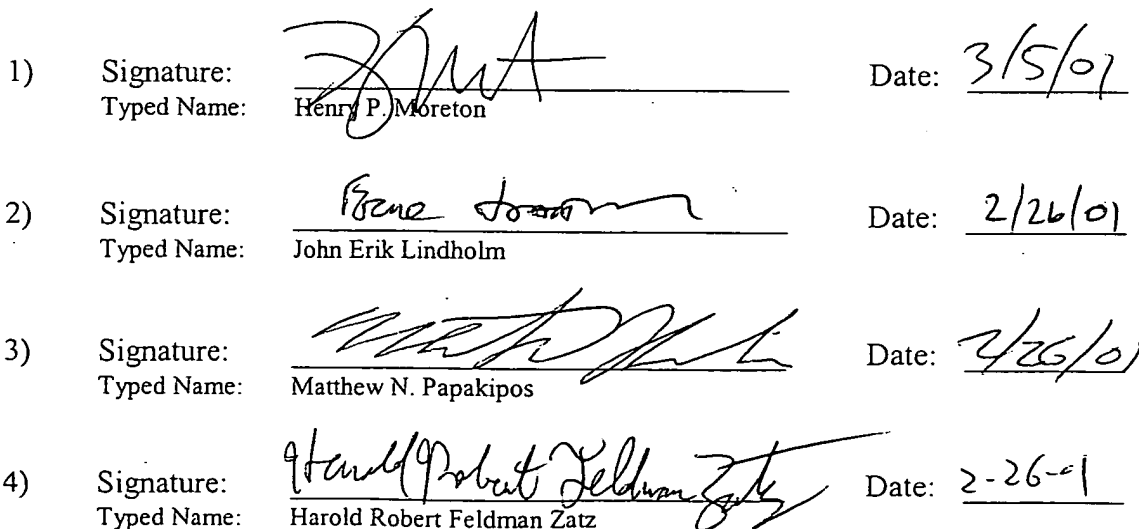 1) Signature: Date: 3/5/01
Typed Name: Henry P. Moreton
2) Signature: Date: 2/26/01
Typed Name: John Erik Lindholm
3) Signature: Date: 2/26/01
Typed Name: Matthew N. Papakipos
4) Signature: Harold Robert Feldman Zatz Date: 2-26-01
Typed Name: Harold Robert Feldman Zatz